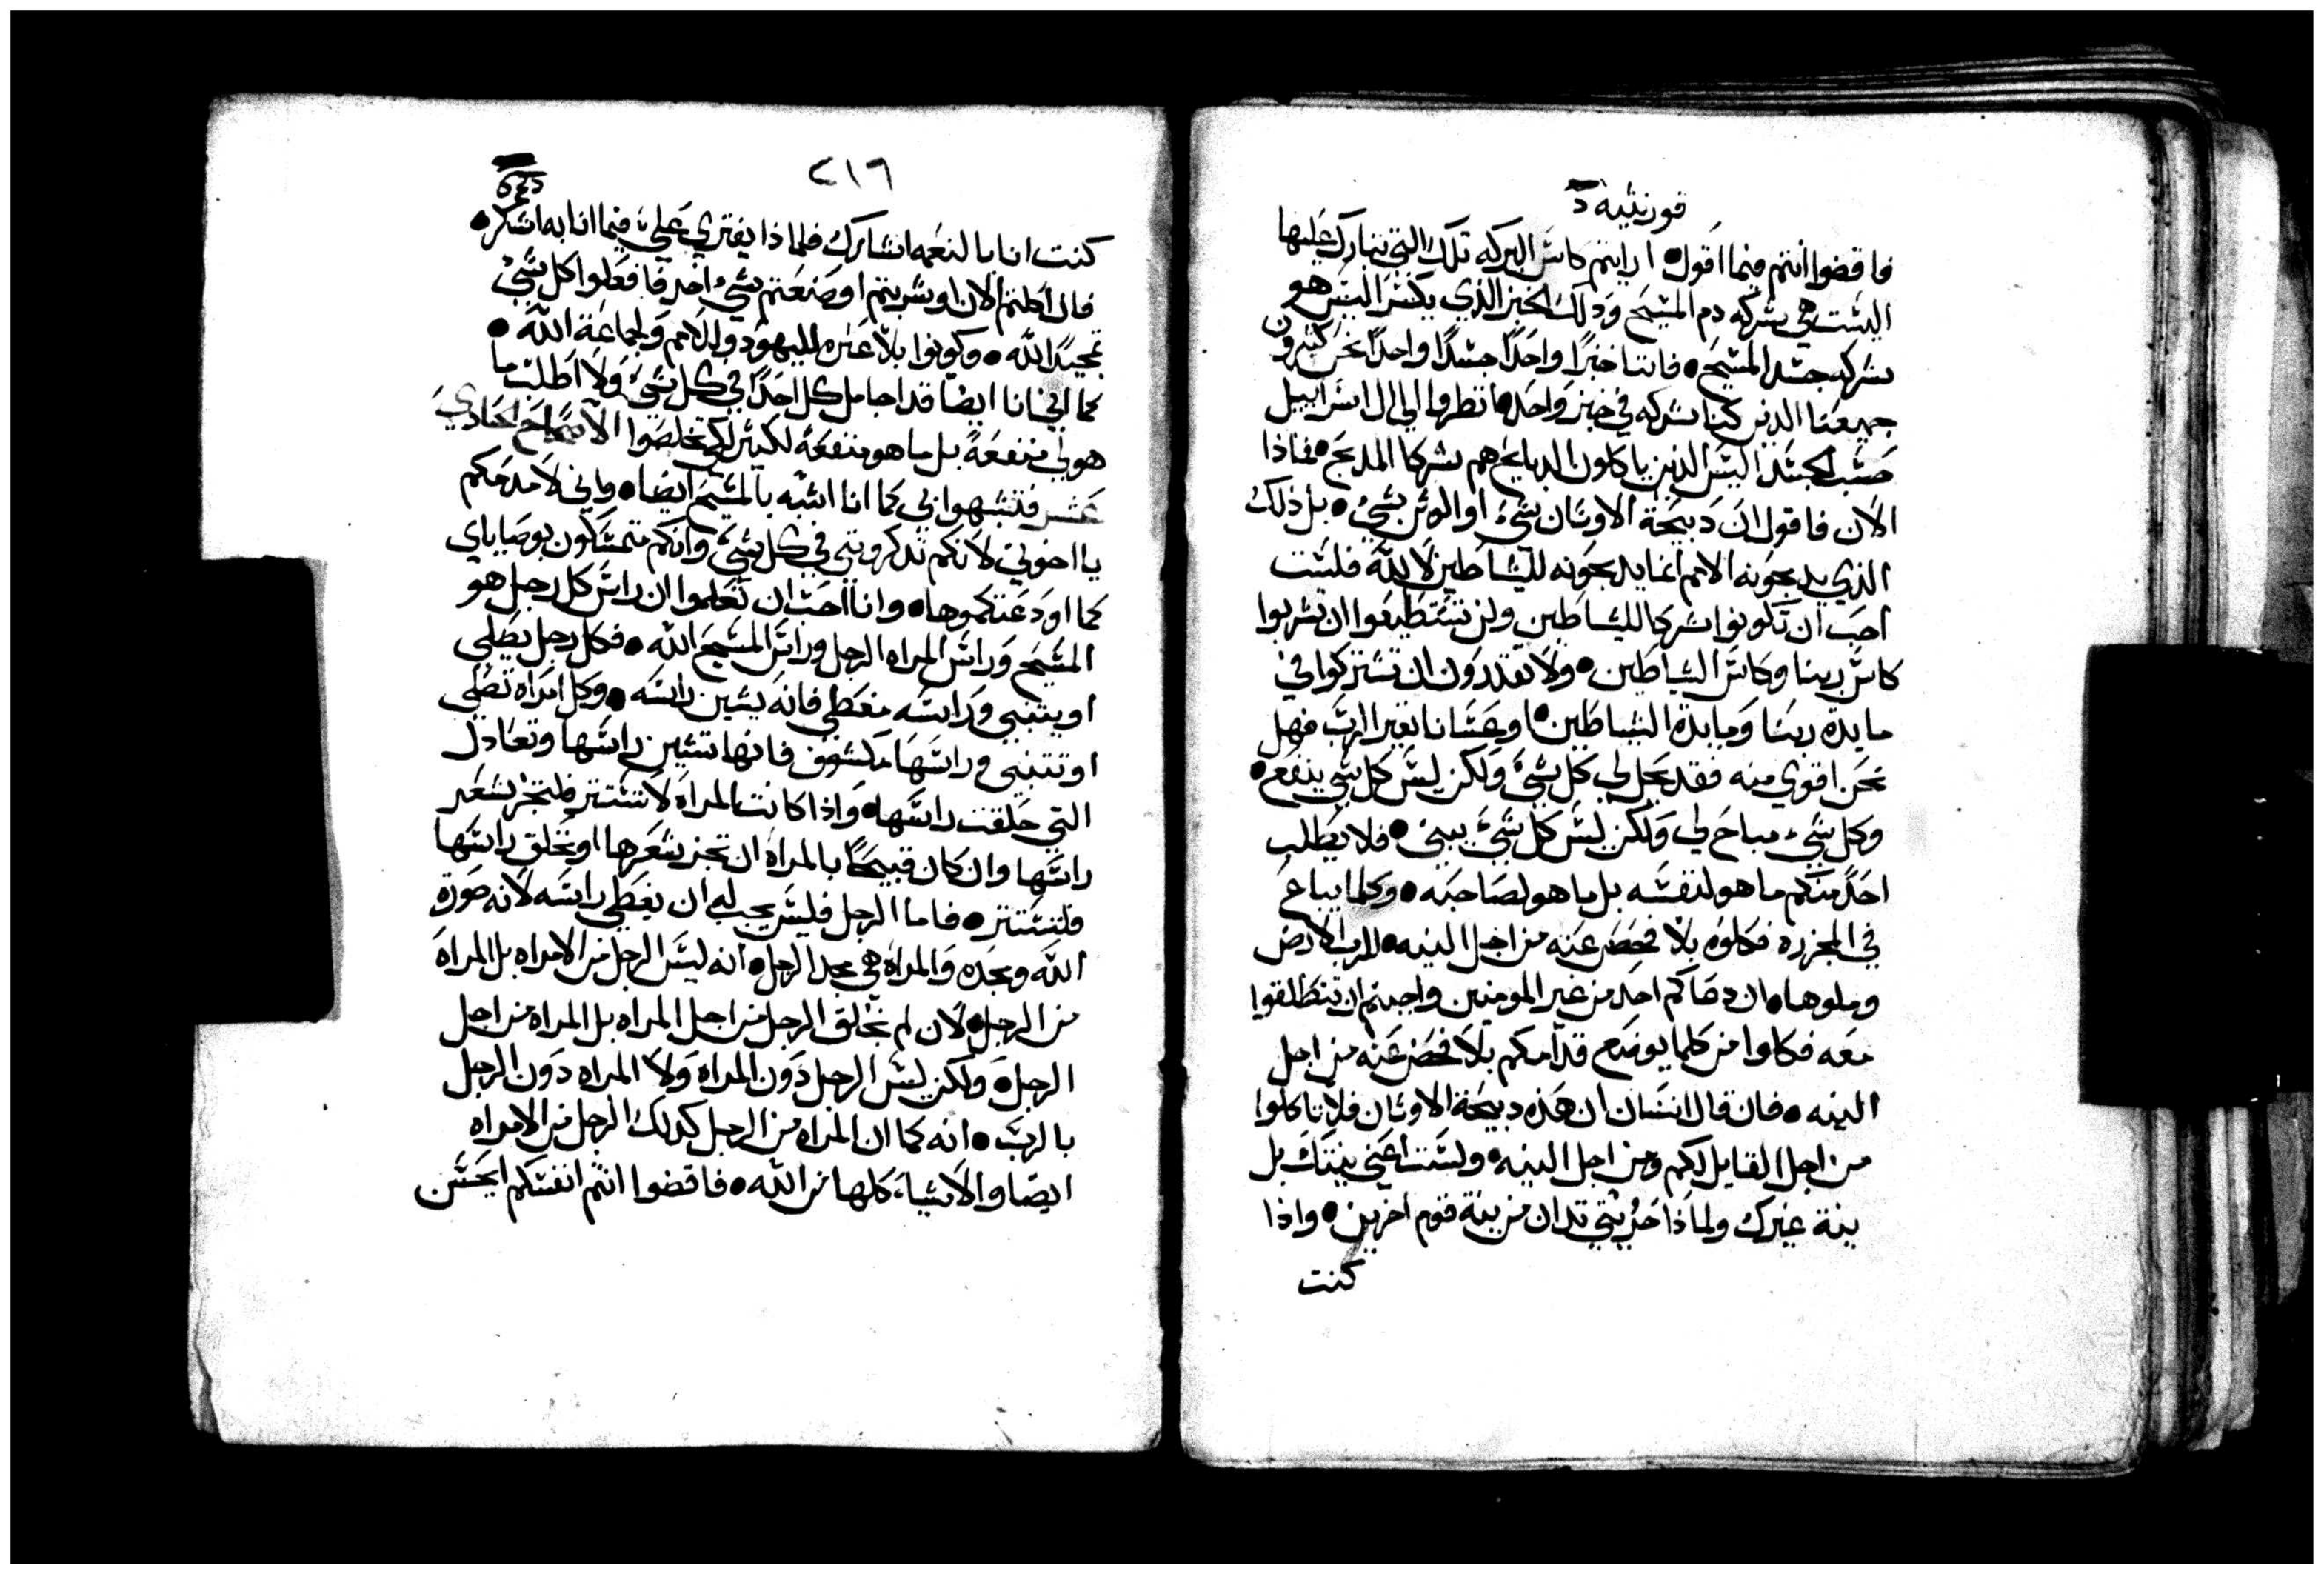 قورنثيه د
فاقضوا انتم فيما اقول● ارايتم كاس البركه تلك التي نتبارك عليها
اليست هي شركه دم المسيح وذلك الخبز الذي يكسر اليس هو
شركه جسد المسيح● فاننا خبزًا واحدًا جسدًا واحدًا نحن كثيرون
جميعنا الدين كينا شركه في خبز واحد● انظروا الي ال اسراييل
حسب الجسد اليس الذين ياكلون الدبايح هم شركا المدبح● فماذا
الان فاقول ان دبيحة الاوثان شيء او الوثن شيء● بل ذلك
الذي يدبحونه الامم انما يدبحونه للشياطين لا لله فلست
احب ان تكونوا شركا للشياطين ولن تستطيعوا ان تشربوا
كاس ربنا وكاس الشياطين● ولا تقدرون ان تشتركوا في
مايدة ربنا ومايدة الشياطين● او عسانا نغير الرب فهل
نحن اقوي منه فقد يحل لي كل شيء ولكن ليس كل شي ينفع●
وكل شيء مباح لي ولكن ليس كل شيء يبني● فلا يطلب
احد منكم ما هو لنفسه بل ما هو لصاحبه● وكلما يباع
في المجزره فكلوه بلا فحص عنه من اجل النيه● للرب الارض
وملوها● ان دعاكم احد من غير المومنين واحببتم ان تنطلقوا
معه فكلوا من كلما يوضع قدامكم بلا فحص عنه من اجل
النيه● فان قال انسان ان هذه دبيحة الاوثان فلا تاكلوا
من اجل القايل لكم ومن اجل النيه● ولست اعني نيتك بل
نية غيرك ولماذا حريتي تدان من نية قوم اخرين● واذا
كنت
٢١٦
كنت انا بالنعمه اتشارك فلماذا يفتري علي فيما انا به اشكر●
فان اكلتم الان او شربتم او صنعتم شيء اخر فافعلوا كل شيء
تمجيدًا لله● وكونوا بلا عثره لليهود وللامم ولجماعة الله●
كما اني انا ايضا قد اجامل كل احدًا في كل شيء ولا اطلب ما
هو لي منفعة بل ما هو منفعة لكثير لكي يخلصوا الاصحاح الحادي
عشر فتشبهوا بي كما انا اتشبه بالمسيح ايضا● واني لامدحكم
يا اخوتي لانكم تدكرونني في كل شيء وانكم متمسكون بوصاياي
كما اودعتكموها● وانا احب ان تعلموا ان راس كل رجل هو
المسيح وراس المراه الرجل وراس المسيح الله● فكل رجل يصلي
او يتنبي وراسه مغطي فانه يشين راسه● وكل امراه تصلي
او تتنبي وراسها مكشوف فانها تشين راسها وتعادل
التي حلقت راسها● واذا كانت المراه لا تستتر فلتجز شعر
راسها وان كان قبيحًا بالمراه ان تجز شعرها او تحلق راسها
فلتستتر● فاما الرجل فليس يجب له ان يغطي راسه لانه صورة
الله ومجده والمراه هي مجد الرجل● انه ليس الرجل من الامراه بل المراه
من الرجل● لان لم يخلق الرجل من اجل المراه بل المراه من اجل
الرجل● ولكن ليس الرجل دون المراه ولا المراه دون الرجل
بالرب● انه كما ان المراه من الرجل كدلك الرجل من الامراه
ايضا والاشيا كلها من الله● فاقضوا انتم انفسكم ايحسن